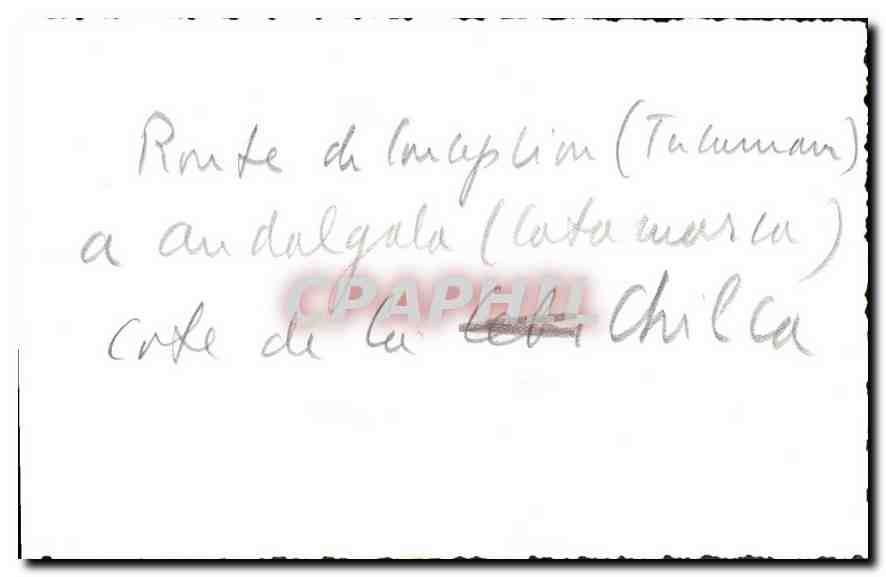 Route de Conception (Tucuman)
a andalgala (Catamarca)
CPAPHIL
Cote de la Chilca